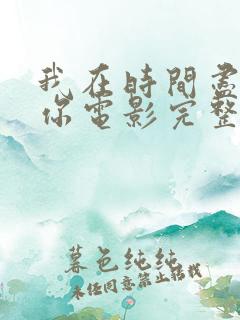 我在時間盡
你電影完整
暮色纯纯
未经同意禁止转载